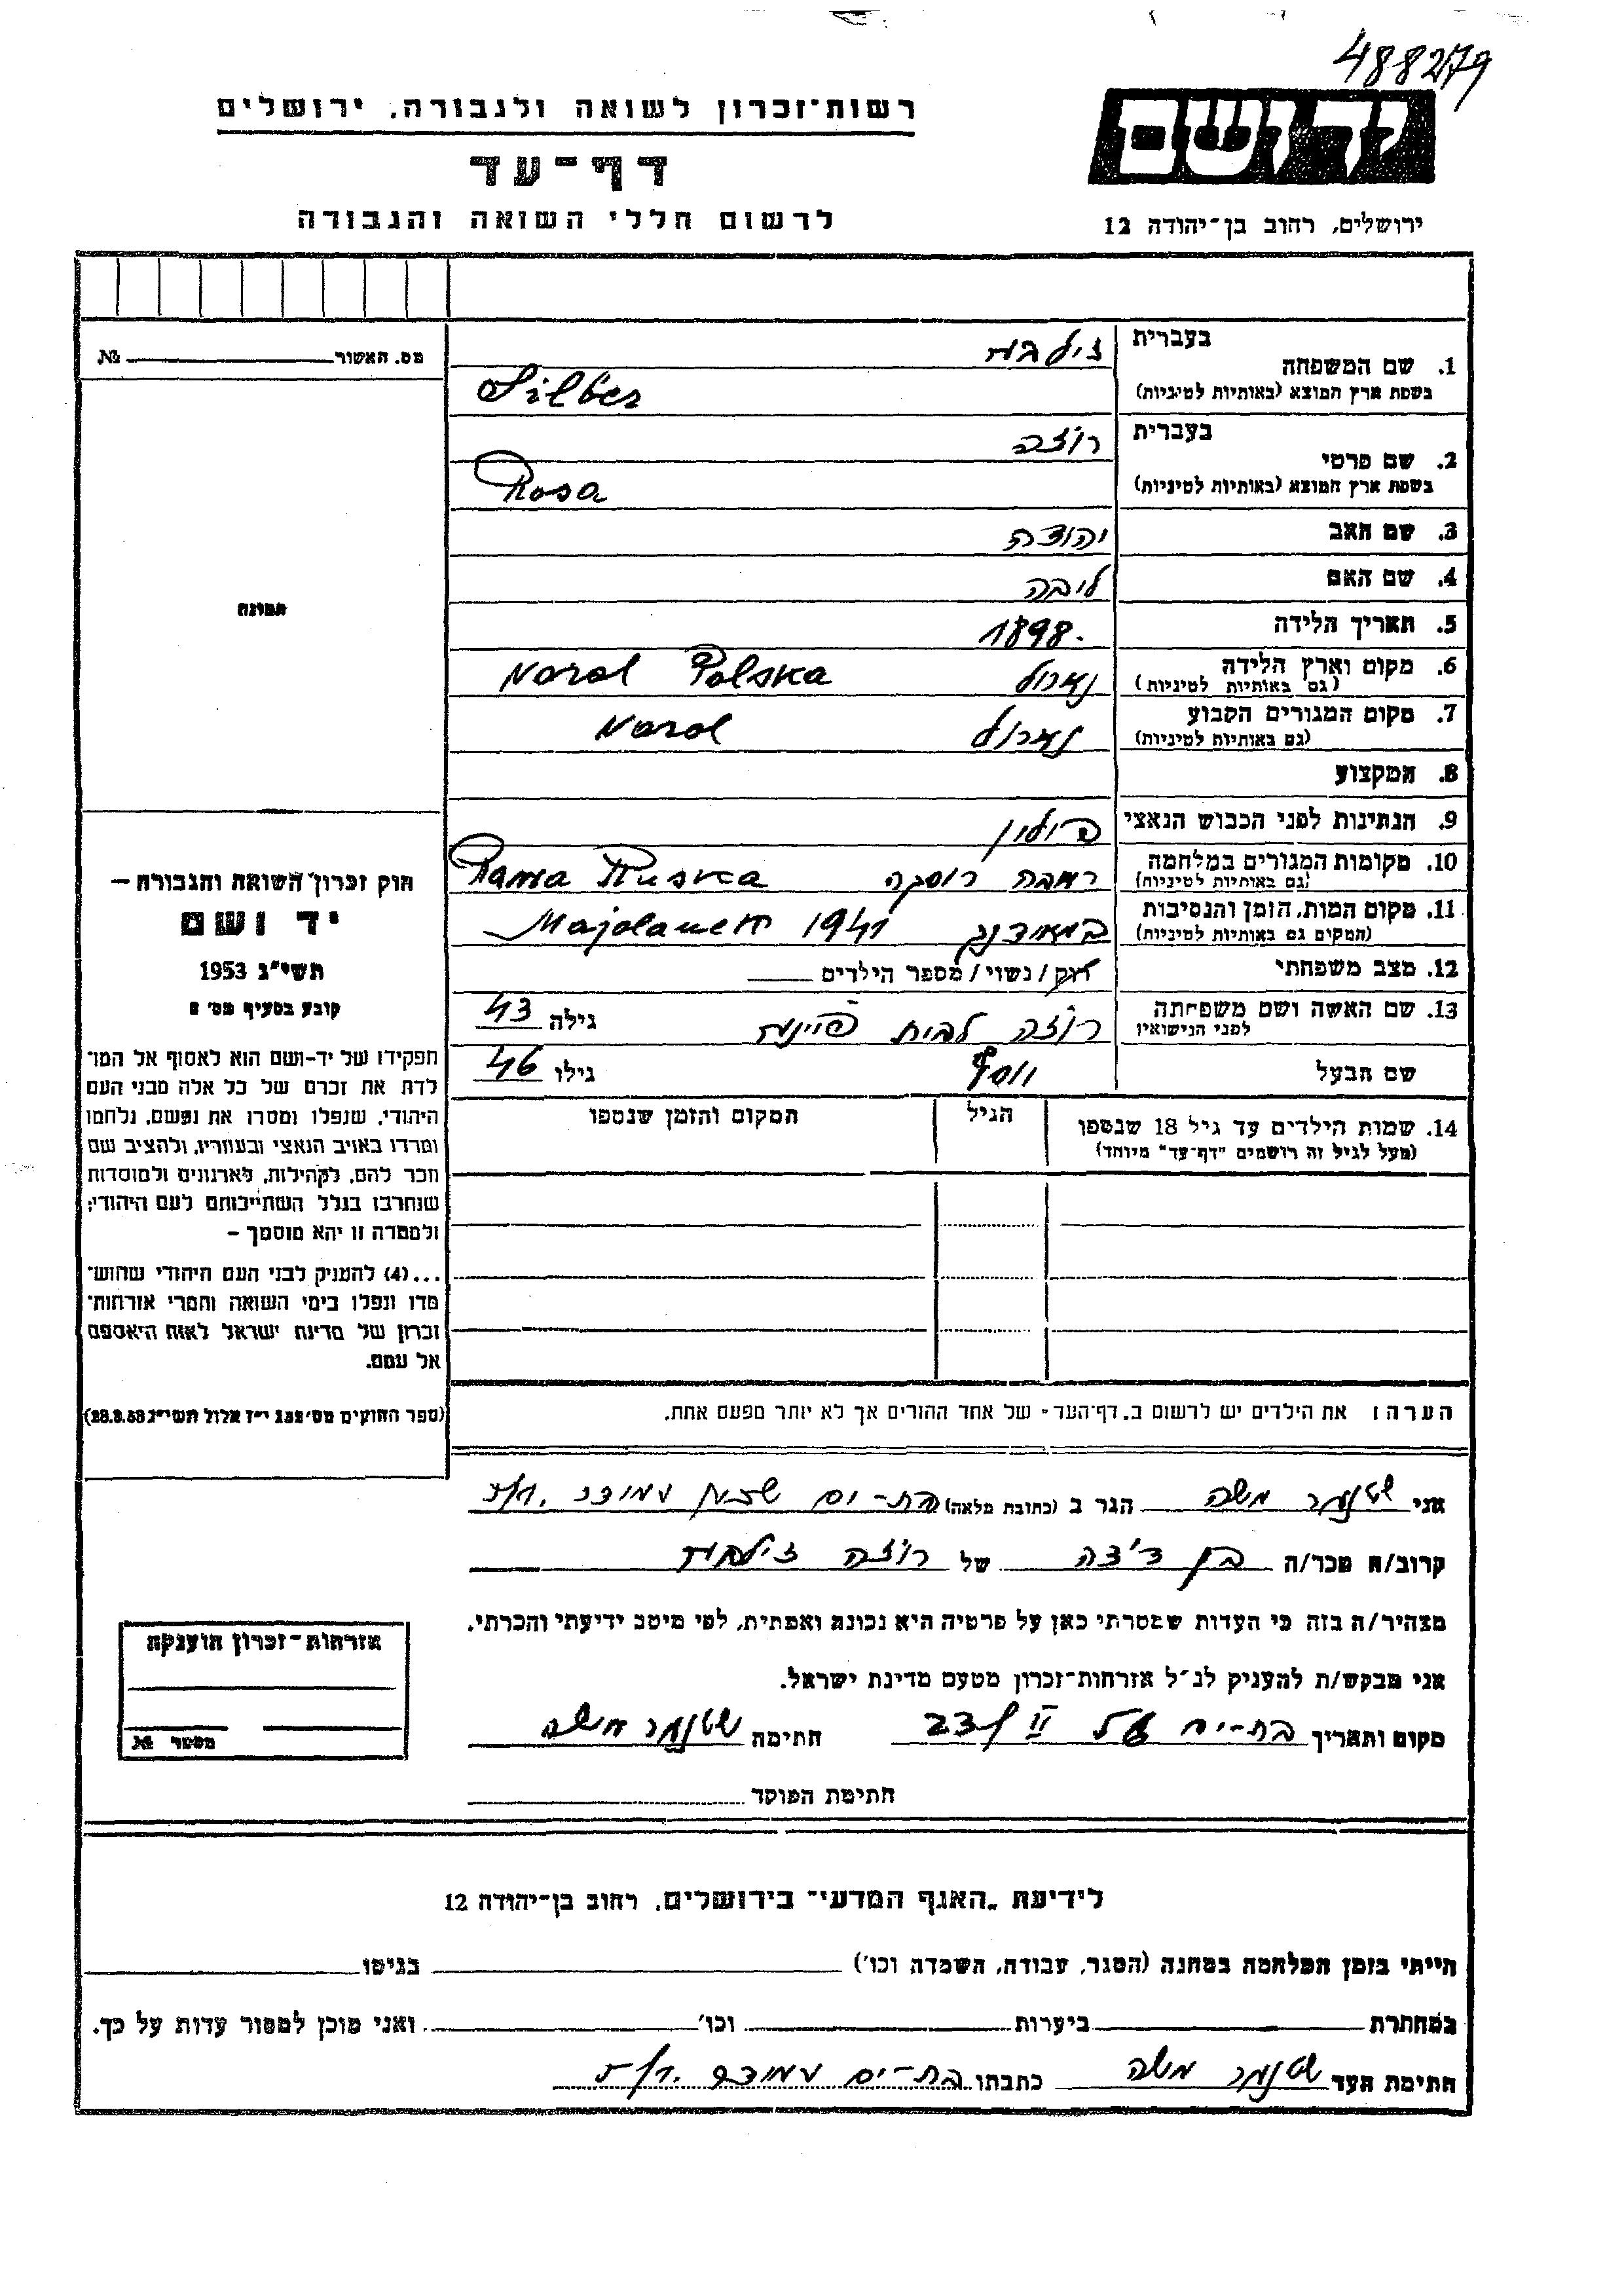 488279
רשות־זכרון לשואה ולגבורה, ירושלים
יד ושם
דף־עד
לרשום חללי השואה והגבורה
ירושלים, רחוב בן־יהודה 12
מס. האשור № 
תמונה
חוק זכרון השואה והגבורה –
יד ושם
תשי״ג 1953
קובע בסעיף מס׳ 2
תפקידו של יד־ושם הוא לאסוף אל המו־
לדת את זכרם של כל אלה מבני העם
היהודי, שנפלו ומסרו את נפשם, נלחמו
ומרדו באויב הנאצי ובעוזריו, ולהציב שם
וזכר להם, לקהילות, לארגונים ולמוסדות
שנחרבו בגלל השתייכותם לעם היהודי;
ולמטרה זו יהא מוסמך –
...(4) להעניק לבני העם היהודי שהוש־
מדו ונפלו בימי השואה והמרי אזרחות־
זכרון של מדינת ישראל לאות היאספם
אל עמם.
(ספר החוקים מס׳ 132 י״ז אלול תשי״ג 28.8.53)
1. שם המשפחה
בעברית זילבר
בשפת ארץ המוצא (באותיות לטיניות) Silber
2. שם פרטי
בעברית רוזה
בשפת ארץ המוצא (באותיות לטיניות) Rosa
3. שם האב יהודה
4. שם האם ליבה
5. תאריך הלידה 1898.
6. מקום וארץ הלידה (גם באותיות לטיניות) נארול Narol Polska
7. מקום המגורים הקבוע (גם באותיות לטיניות) נארול Narol
8. המקצוע
9. הנתינות לפני הכבוש הנאצי פולין
10. מקומות המגורים במלחמה (גם באותיות לטיניות) ראבה רוסקה Rawa Ruska
11. מקום המות, הזמן והנסיבות (המקום גם באותיות לטיניות) במאידנק Majdanek 1941
12. מצב משפחתי רוק / נשוי / מספר הילדים
13. שם האשה ושם משפחתה לפני הנישואין רוזה לבית גילה 43
שם הבעל יוסף גילו 46
14. שמות הילדים עד גיל 18 שנספו (מעל לגיל זה רושמים "דף־עד" מיוחד) הגיל המקום והזמן שנספו
הערה: את הילדים יש לרשום ב„דף־העד" של אחד ההורים אך לא יותר מפעם אחת.
אני משה הגר ב (כתובת מלאה) בת-ים
קרוב/ה מכר/ה בן דודה של רוזה זילבר
מצהיר/ה בזה כי העדות שמסרתי כאן על פרטיה היא נכונה ואמתית, לפי מיטב ידיעתי והכרתי.
אני מבקש/ת להעניק לנ״ל אזרחות־זכרון מטעם מדינת ישראל.
מקום ותאריך בת-ים 23/II חתימה משה
חתימת הפוקד
אזרחות־זכרון הוענקה
מספר №
לידיעת „האגף המדעי" בירושלים, רחוב בן־יהודה 12
הייתי בזמן המלחמה במחנה (הסגר, עבודה, השמדה וכו׳) בגיטו
במחתרת ביערות וכו׳ ואני מוכן למסור עדות על כך.
חתימת העד משה כתבתו בת-ים